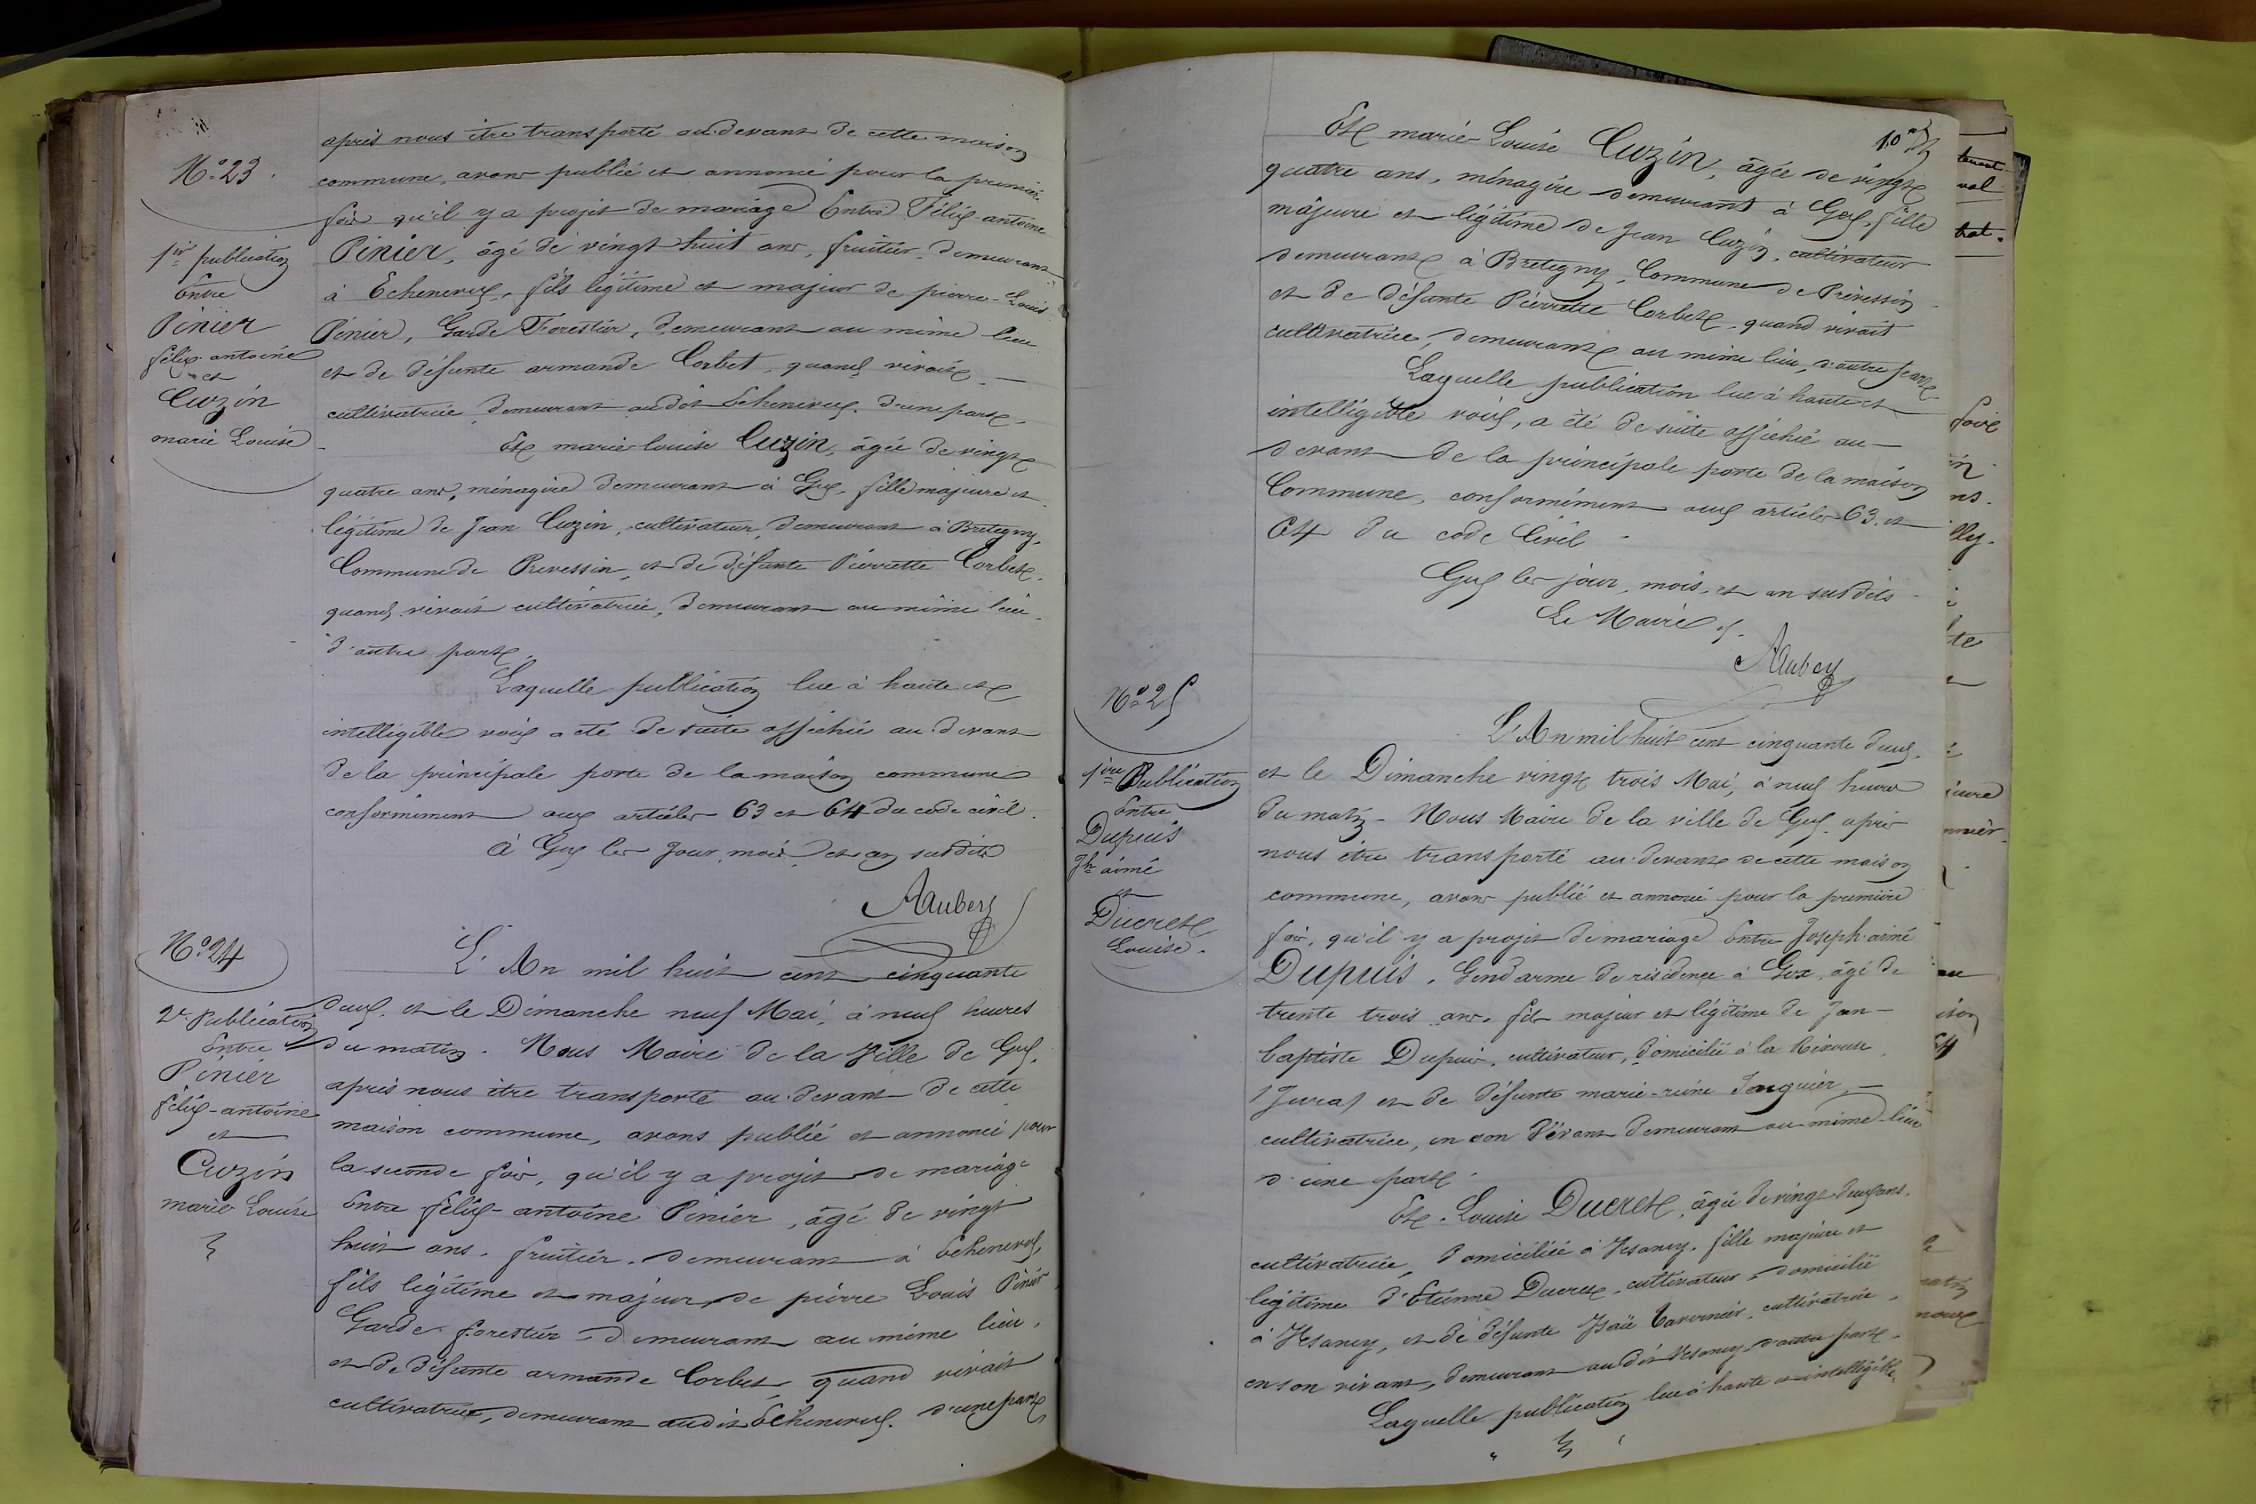 après nous être transporté au devant de cette maison
N° 23.
commune, avons publié et annoncé pour la première
fois qu'il y a projet de mariage Entre Félix antoine
Pinier, âgé de vingt huit ans, fruitier, demeurant
à Echenevex, fils légitime et majeur de pierre-Louis
Pinier, Garde Forestier, demeurant au même lieu
et de défunte armande Corbet, quand vivait
cultivatrice, demeurant audit Echenevex. d'une part.
1re publication
Entre
Pinier
félix-antoine
et
Cuzin
marie Louise
Et marie-louise Cuzin, âgée de vingt
quatre ans, ménagère demeurant à Gex, fille majeure et
légitime de Jean Cuzin, cultivateur, demeurant à Bretegny,
Commune de Prevessin, et de défunte Pierrette Corbet,
quand vivait cultivatrice, demeurant au même lieu,
d'autre part.
Laquelle publication lue à haute et
intelligible voix a été de suite affichée au devant
de la principale porte de la maison commune
conformément aux articles 63 et 64 du code civil.
à Gex les Jour, mois et an susdits
Aubery
N° 24
L'An mil huit cent cinquante
deux, et le Dimanche neuf Mai, à neuf heures
du matin. Nous Maire de la Ville de Gex,
après nous être transporté au devant de cette
maison commune, avons publié et annoncé pour
la seconde fois, qu'il y a projet de mariage
Entre félix-antoine Pinier, âgé de vingt
huit ans, fruitier, demeurant à Echenevex,
fils légitime et majeur de pierre Louis Pinier
Garde forestier, demeurant au même lieu,
et de défunte armande Corbet, quand vivait
cultivatrice, demeurant audit Echenevex. d'une part
2e Publication
Entre
Pinier
félix-antoine
et
Cuzin
marie Louise
10
Et marie-Louise Cuzin, âgée de vingt
quatre ans, ménagère demeurant à Gex, fille
majeure et légitime de Jean Cuzin, cultivateur
demeurant à Bretegny, Commune de Prévessin
et de défunte Pierrette Corbet, quand vivait
cultivatrice, demeurant au même lieu, d'autre part
Laquelle publication lue à haute et
intelligible voix, a été de suite affichée au
devant de la principale porte de la maison
Commune, conformément aux articles 63 et
64 du code Civil
Gex les jour, mois, et an susdits
Le Maire
Aubery
N° 25
L'An mil huit cent cinquante deux,
et le Dimanche vingt trois Mai, à neuf heures
du matin. Nous Maire de la ville de Gex, après
nous être transporté au devant de cette maison
commune, avons publié et annoncé pour la première
fois, qu'il y a projet de mariage Entre Joseph aimé
Dupuis, Gendarme de résidence à Gex, âgé de
trente trois ans, fils majeur et légitime de Jean-
baptiste Dupuis, cultivateur, domicilié à la Rixouse
(Jura) et de défunte marie-reine
cultivatrice, en son vivant demeurant au même lieu
d'une part.
1ère Publication
Entre
Dupuis
Jh aimé
et
Ducret
Louise.
Et Louise Ducret, âgée de vingt deux ans,
cultivatrice, domiciliée à Vesancy, fille majeure et
légitime d'Etienne Ducret, cultivateur, domicilié
à Vesancy, et de défunte cultivatrice,
en son vivant, demeurant audit Vesancy, d'autre part.
Laquelle publication lue à haute et intelligible